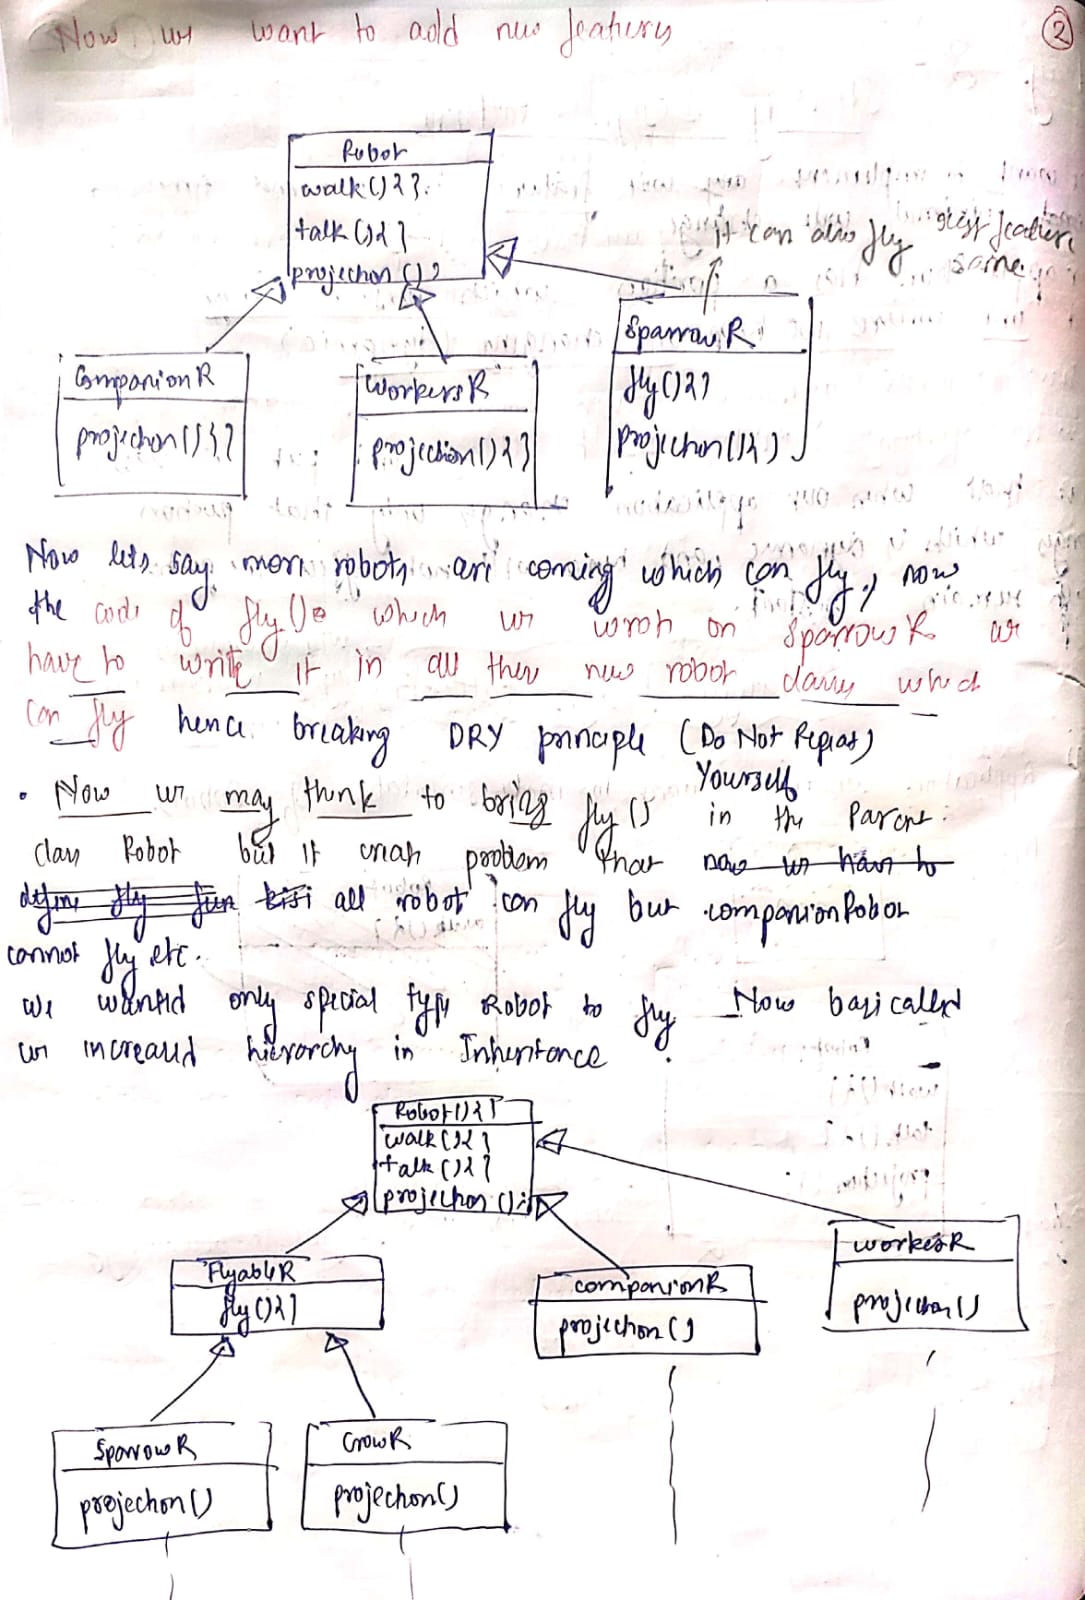 Now we want to add new features
2
Robot
walk(){}
talk(){}
projection();
it can also fly
rest feature
same
CompanionR
projection(){}
WorkersR
projection(){}
SparrowR
fly(){}
projection(){}
Now lets say more robots are coming which can fly, now
the code of fly() which we wrote on SparrowR we
have to write it in all these new robot class which
can fly hence breaking DRY principle (Do Not Repeat)
Yourself
• Now we may think to bring fly() in the Parent
class Robot but it create problem that now we have to
define fly all robot can fly but companionRobot
cannot fly etc.
We wanted only special type Robot to fly. Now basically
we increased hierarchy in Inheritance
Robot(){}
walk(){}
talk(){}
projection();
FlyableR
fly(){}
companionR
projection()
workerR
projection()
SparrowR
projection()
CrowR
projection()